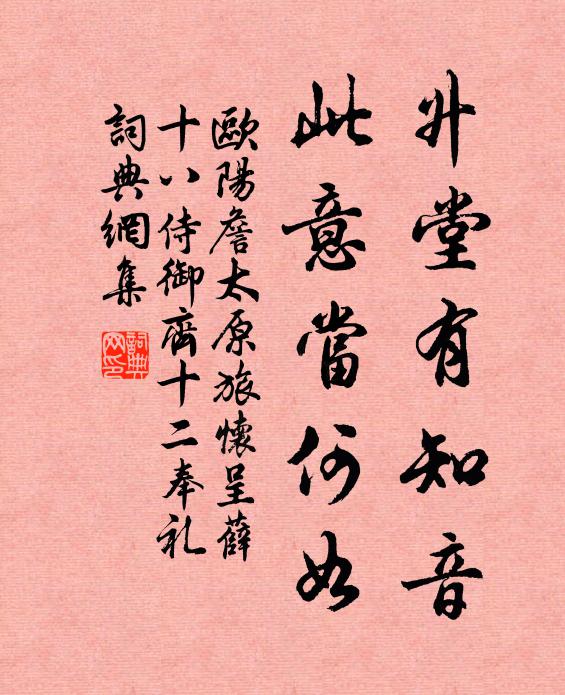 升堂有知音
此意當何如
歐陽詹太原旅懷呈薛
十八侍御齊十二奉礼
詞典網集
詞典網印